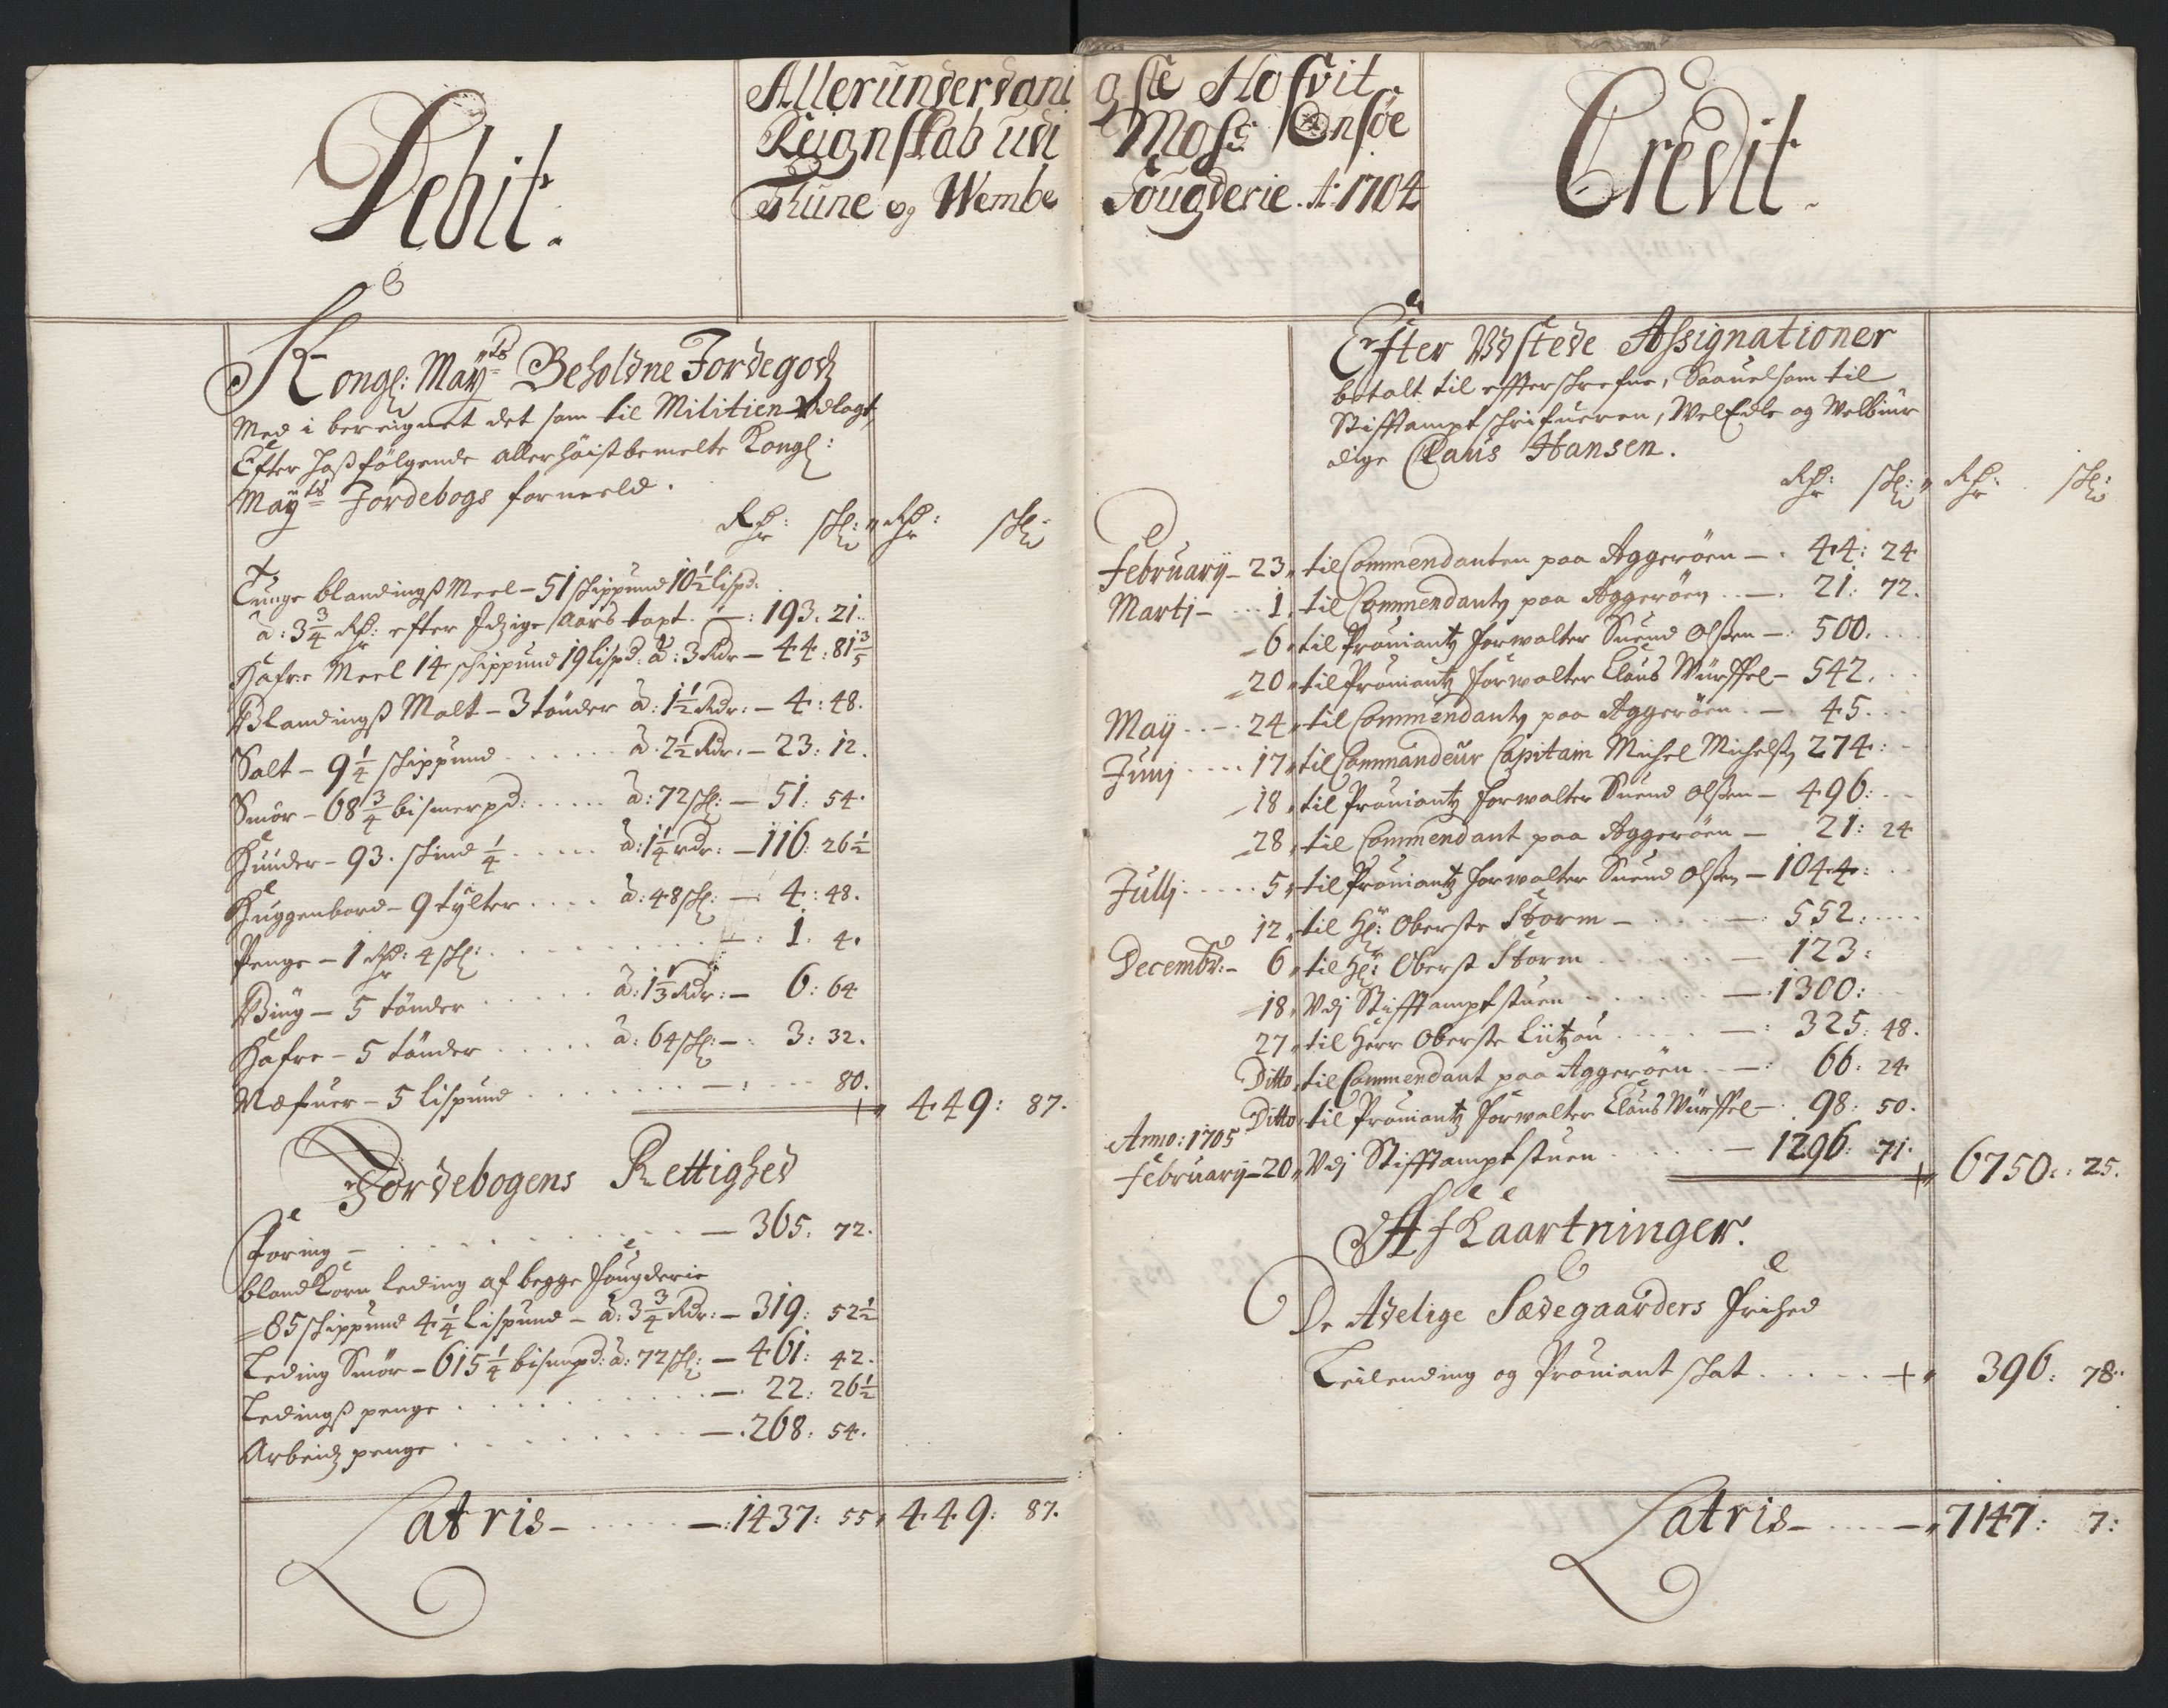 Debit.
Allerunderdanigste Hofvit
Reignskab udi Moss Onsøe
Thune og Wembe Fougderie. A: 1704
Credit.
Kongl: Mayts Beholdne Jordegodz
Med i beregnet det som til Militien Udlagt,
Efter hosfölgende allerhöistbemelte Kongl:
Mayts Jordebogs formeld.
Rdr: sk: Rdr: sk:
Tunge blandingß Meel - 51 schippund 10½ lispd.
à: 3¾ Rdr: efter Idzige Aars taxt. —: 193. 21.
Hafre Meel 14 schippund 19 lispd. à: 3 Rdr — 44: 81 3/5
Blandingß Malt - 3 tönder à: 1½ Rdr: — 4: 48.
Salt - 9¼ schippund ..... à. 2½ Rdr: — 23: 12.
Smör - 68¾ bismerpd: ..... à: 72 sk: — 51: 54.
Huuder - 93. skind ¼ ..... à: 1¼ rdr: — 116: 26½
Huggenbord - 9 tylter .... à: 48 sk: — 4: 48.
Penge - 1 Rdr: 4 sk: ..... —: 1. 4.
Biug — 5 tönder ..... à: 1⅓ Rdr: — 6: 64
Hafre - 5 tönder ..... à: 64 sk: —: 3: 32.
Næfuer - 5 Lispund ..... —: ... 80.
449: 87.
Jordebogens Rettighed
Foring — ..... — 365: 72.
blandkorn leding af begge fougderie
= 85 schippund 4¼ Lispund - à: 3¾ Rdr: — 319: 52½
Leding Smör - 615¼ bismpd: à: 72 sk: — 461: 42.
Ledingß penge ..... — 22: 26½
Arbeidz penge ..... —. 268: 54.
Latris - ..... —: 1437: 55 449: 87.
Efter Udstede Assignationer
betalt til effterschrefne, Saauelsom til
Stifftampt schrifueren, WelEdle og Welbiur
dige Claus Hansen.
Rdr: sk: Rdr: sk:
February - 23 til Commendanten paa Aggeröen — . 44: 24
Martj - ... 1. til Commendantz paa Aggeröen .. —. 21: 72.
- 6 til Prouiantz forwalter Suend Olßen —: 500.
- 20 til Prouiantz forwalter Claus Würffel — 542.
May .... 24 til Commendantz paa Aggeröen . — . 45.
Junj .... 17 til Commandeur Capitain Michel Michelß 274:
- 18 til Prouiantz forwalter Suend Olßen — 496:
- 28 til Commendant paa Aggeröen — 21: 24
Jullj ..... 5 til Prouiantz forwalter Suend Olßen — 1044:
12 til Hr: Oberste Storm — ..... —: 552:
Decembr: - 6 til Hr: Oberst Storm ..... — 123:
- 18 Udj Stifftamptstuen ..... — 1300:
27 til Herr Oberste Lützau ..... —: 325: 48.
Ditto til Commendant paa Aggeröen .. —: 66: 24
Ditto til Prouiantz forwalter Claus Würffel — . 98: 50.
Anno: 1705
February - 20 Udj Stifftamptstuen ..... — 1296: 71. 6750: 25.
Afkaartninger.
De Adelige Sædegaarders frihed
Leilending og Prouiant skat ..... 396: 78.
Latris - ..... — 7147: 7: